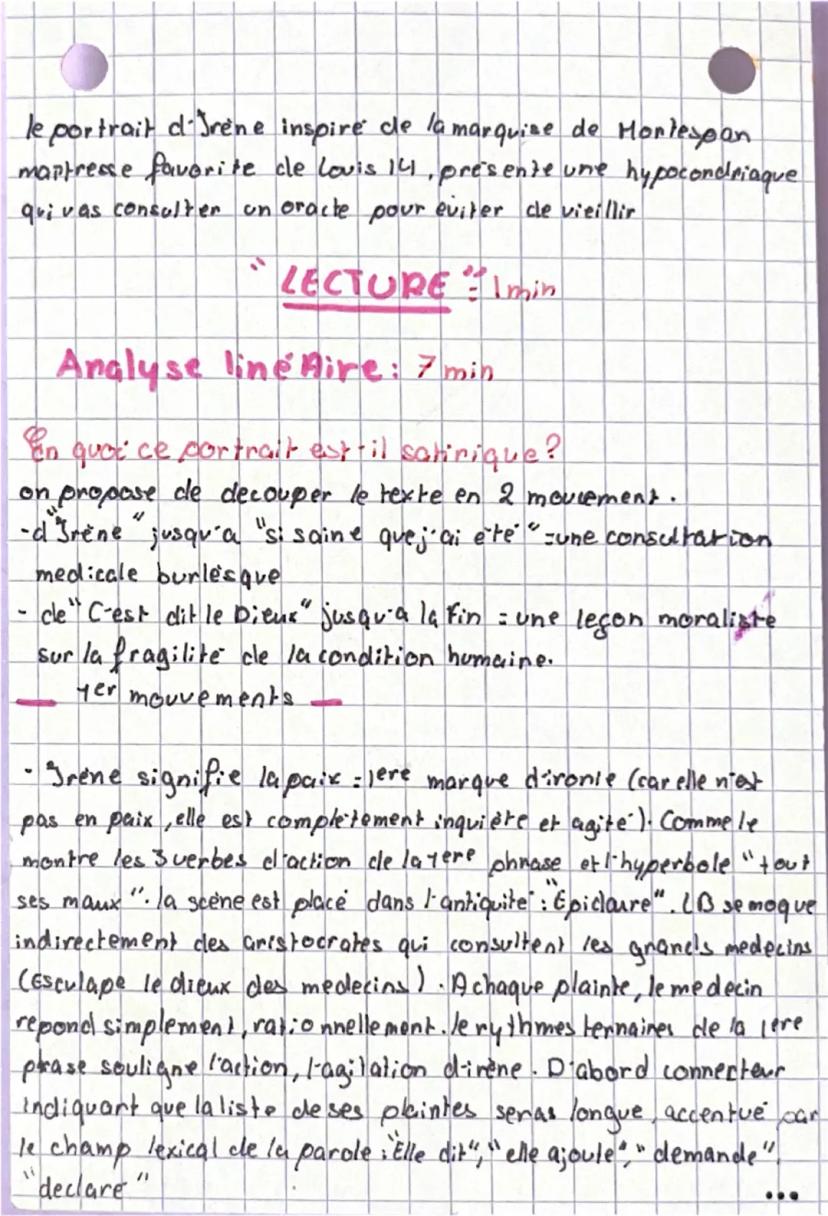 le portrait d'Irène inspiré de la marquise de Montespan
maîtresse favorite de Louis 14, présente une hypocondriaque
qui vas consulter un oracte pour éviter de vieillir
"LECTURE" = 1min
Analyse linéAire : 7 min
En quoi ce portrait est-il satirique ?
on propose de decouper le texte en 2 mouvement.
-d'"Irène" jusqu'a "si saine que j'ai été" = une consultation
medicale burlesque
- de "C'est dit le Dieux" jusqu'a la fin = une leçon moraliste
sur la fragilité de la condition humaine.
— 1er mouvements —
- Irène signifie la paix = 1ere marque d'ironie (car elle n'est
pas en paix, elle est complètement inquiète et agité). Comme le
montre les 3 verbes d'action de la 1ere phrase et l'hyperbole "tout
ses maux". la scène est placé dans l'antiquité : "Epidaure". LB se moque
indirectement des aristocrates qui consultent les grands medecins
(Esculape le dieux des medecins). A chaque plainte, le medecin
repond simplement, rationnellement. le rythmes ternaires de la 1ere
phrase souligne l'action, l'agitation d'irène. D'abord connecteur
indiquant que la liste de ses plaintes seras longue, accentué par
le champ lexical de la parole : "Elle dit", "elle ajoute", "demande",
"declare"
...